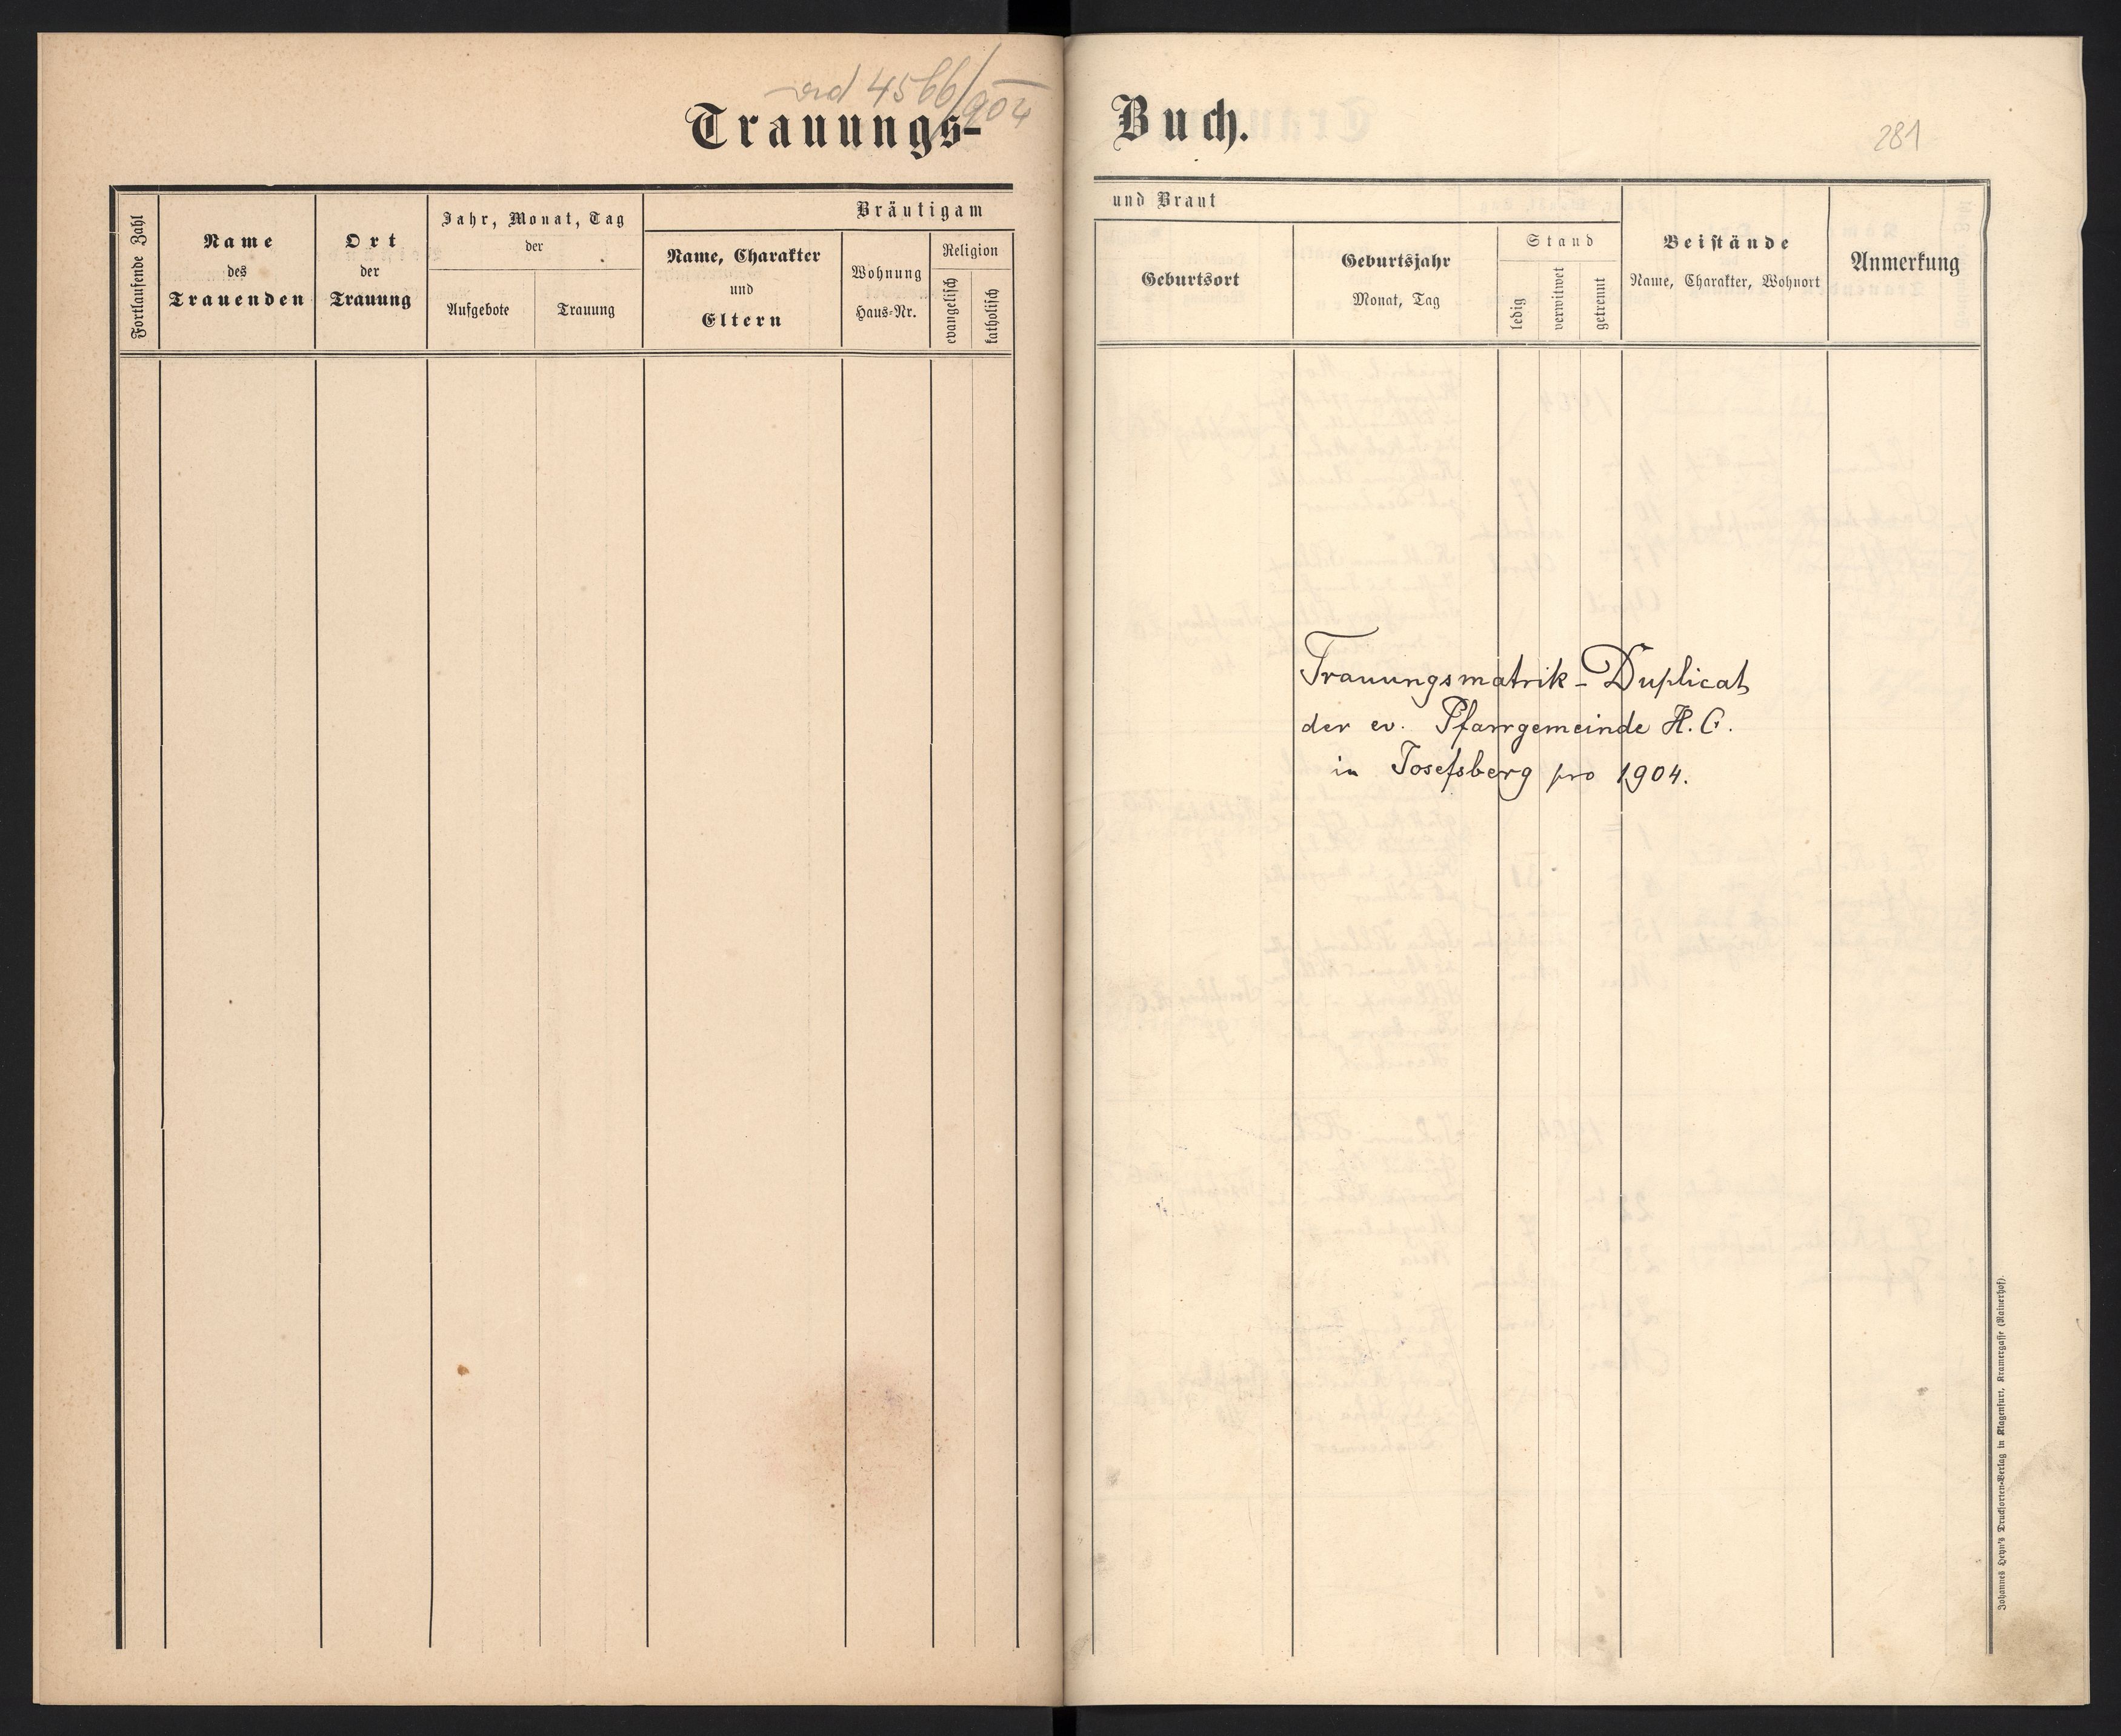 ad 4566/904
Trauungs-
Fortlaufende Zahl
Name
des
Trauenden
Ort
der
Trauung
Jahr, Monat, Tag
der
Aufgebote
Trauung
Bräutigam
Name, Charakter
und
Eltern
Wohnung
Haus-Nr.
Religion
evangelisch
katholisch
Buch.
281
und Braut
Geburtsort
Geburtsjahr
Monat, Tag
Stand
ledig
verwitwet
getrennt
Beistände
Name, Charakter, Wohnort
Anmerkung
Trauungsmatrik-Duplicat
der ev. Pfarrgemeinde H.C.
in Josefsberg pro 1904.
Johannes Heyn's Drucksorten-Verlag in Klagenfurt, Kramergasse (Rainerhof).